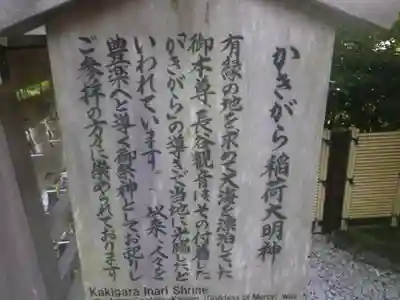 かきがら稲荷大明神
有縁の地を求めて大海を漂泊していた
御本尊長谷観音はその付着した
「かきがら」の導きで当地に出現したと
いわれています。以来人々を
豊楽へと導く御祭神としてお祀りし
ご参拝の方々に崇められております
Kakigara Inari Shrine
(Goddess of Mercy) was